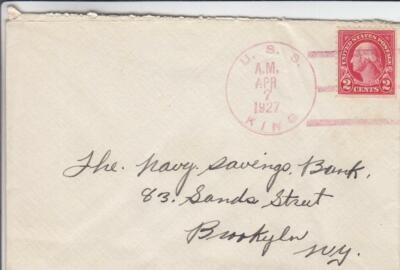 U. S. S.
A.M.
APR
7
1927
KING
UNITED STATES POSTAGE
2 CENTS 2
The. Navy. Savings. Bank,
83. Sands Street
Brooklyn
N.Y.